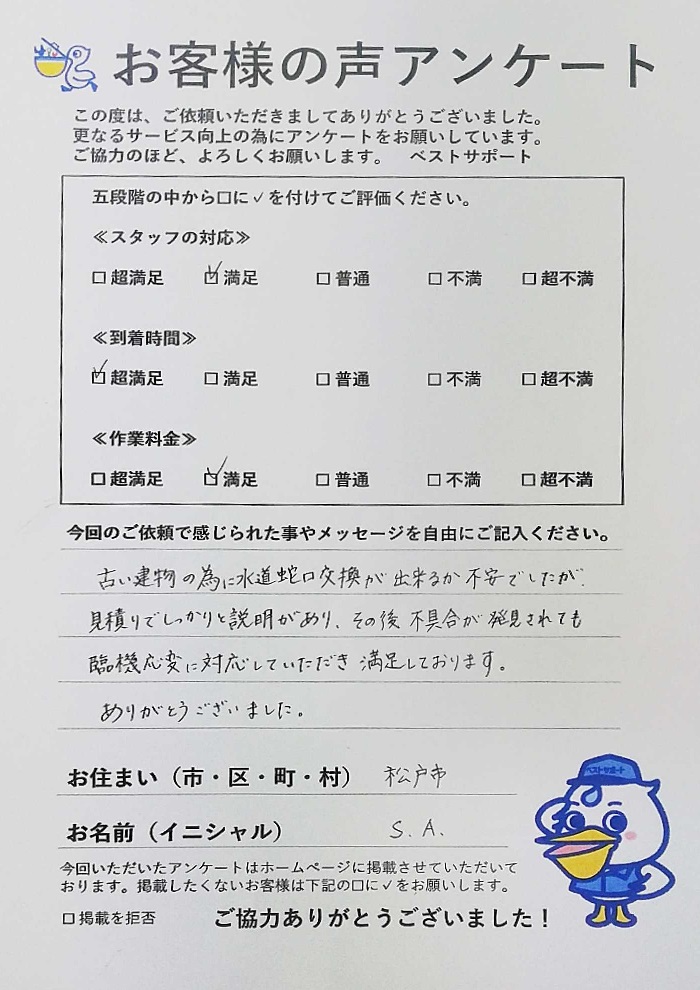 お客様の声アンケート
この度は、ご依頼いただきましてありがとうございました。
更なるサービス向上の為にアンケートをお願いしています。
ご協力のほど、よろしくお願いします。 ベストサポート
五段階の中から□に✓を付けてご評価ください。
≪スタッフの対応≫
□ 超満足 ☑ 満足 □ 普通 □ 不満 □ 超不満
≪到着時間≫
☑ 超満足 □ 満足 □ 普通 □ 不満 □ 超不満
≪作業料金≫
□ 超満足 ☑ 満足 □ 普通 □ 不満 □ 超不満
今回のご依頼で感じられた事やメッセージを自由にご記入ください。
古い建物の為に水道蛇口交換が出来るか不安でしたが、
見積りでしっかりと説明があり、その後不具合が発見されても
臨機応変に対応していただき満足しております。
ありがとうございました。
お住まい(市・区・町・村) 松戸市
お名前(イニシャル) S.A.
ベストサポート
今回いただいたアンケートはホームページに掲載させていただいて
おります。掲載したくないお客様は下記の□に✓をお願いします。
□ 掲載を拒否 ご協力ありがとうございました！